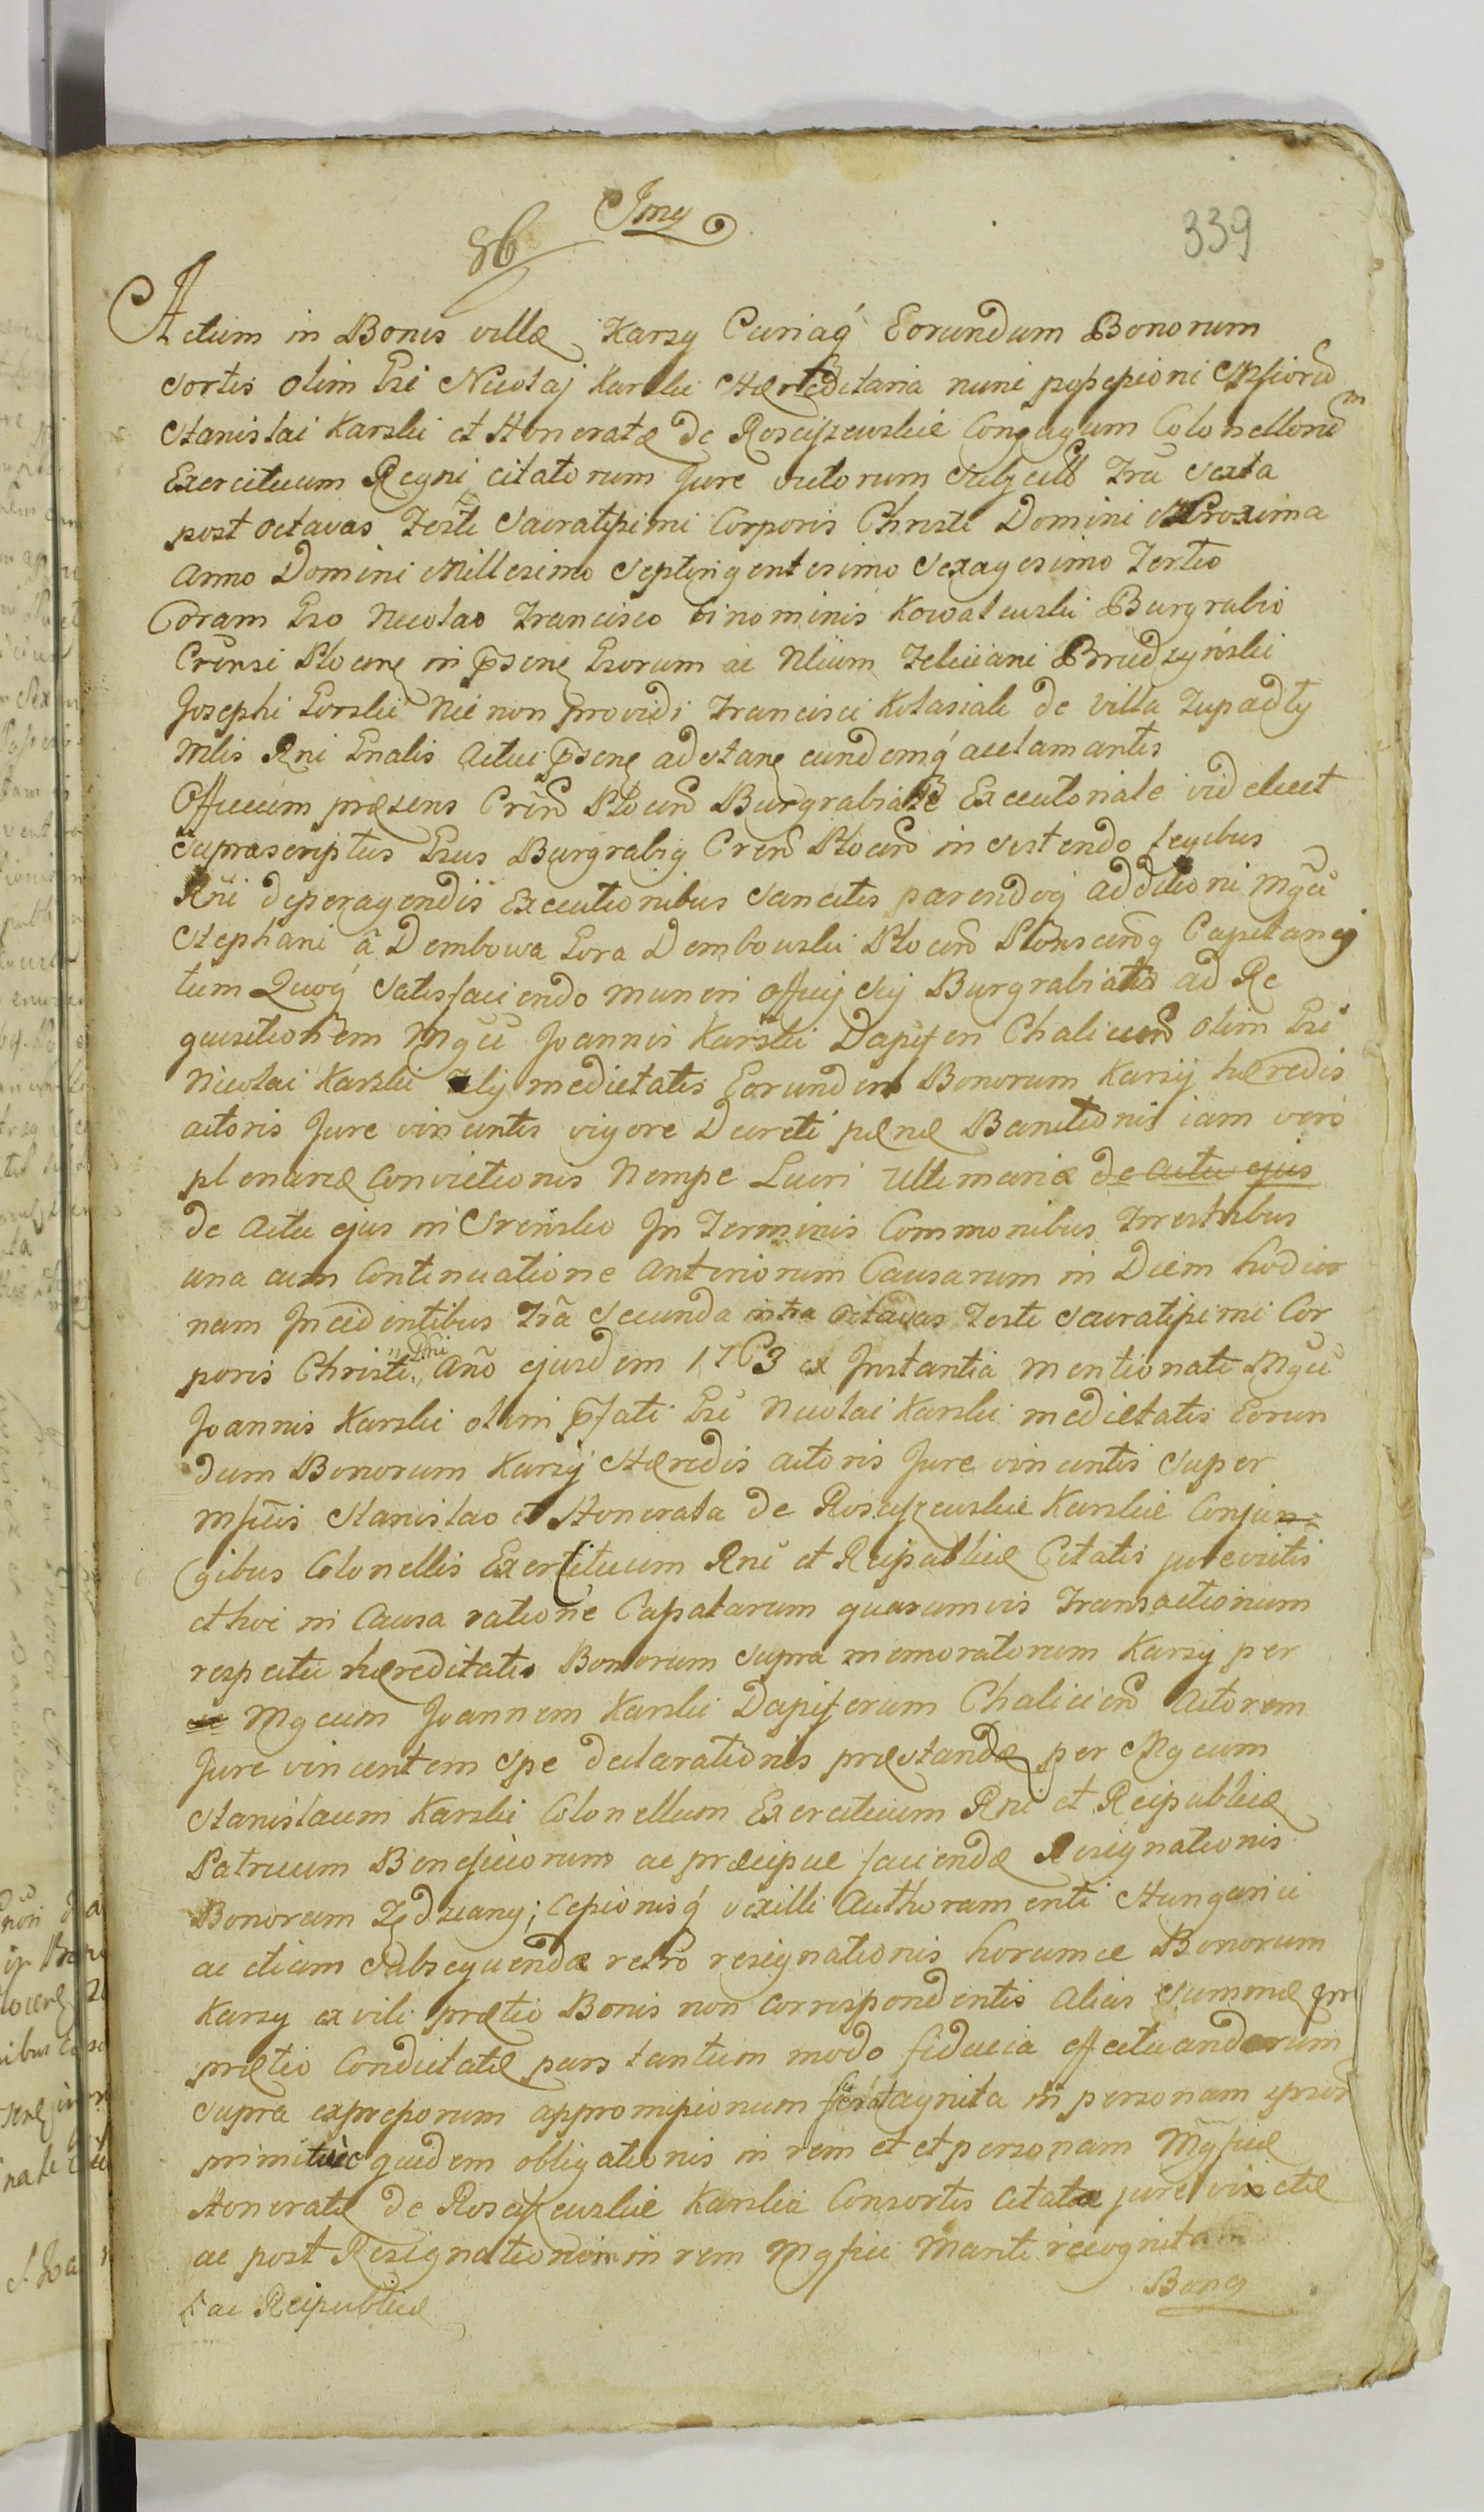 Jmg
86
339
Actum in Bonis villæ Karzy Curiaq́ Eorundum Bonorum
sortis olim Gsi Nicolaj Karski Hæreditaria nunc possessioni
Stanislai Karski et Honoratæ de Rosciszewskie Conjugum Colonellorum
Exercituum Regni citatorum Jure victorum Fra Sexta
post octavas Festi Sacratissimi Corporis Christi Domini Proxima
Anno Domini Millesimo Septingentesimo Sexagesimo Tertio
Coram Gso Nicolao Francisco binominis Kowalewski Burgrabio
Crensi Plocen in p̄sen Gsorum ac Nlium Feliciani Brudzyński
Josephi Gorski nec non providi Francisci Kolasiak de villa Zupadly
Mlis Rni Gnalis Actui p̄sen adstan eundemq́ acclamantis
Officium præsens Cren Plocen Burgrabiale Executoriale videlicet
Suprascriptus Gsus Burgrabiq Cren Plocen in sistendo legibus
Rni de peragendis Executionibus sancitis parendoq́ additioni Mgci
Stephani â Dembowa Gora Dembowski Plocen Plonscenq Capitanej
tum Quoq́ Satisfaciendo muneri officij sui Burgrabiatus ad Re
quisitionem Mgci Joannis Karski Dapiferi Halicien olim Gsi
Nicolai Karski filij medietatis Eorundem Bonorum Karzy hæredis
actoris Jure vincentis vigore Decreti pænæ Banitionis iam vero
plenariæ Convictionis Nempe Lucri Ultimariæ de actu ejus
de Actu ejus in Srensko In Terminis Communibus Terrestribus
una cum Continuatione Anteriorum Causarum in Diem hodier
nam Incidentibus Fra̅ Secunda intra octavas Festi Sacratissimi Cor
poris Christi Dni Año ejusdem 1763 ex Instantia mentionati Mgci
Joannis Karski olim p̄fati Gsi Nicolai Karski medietatis Eorun
dum Bonorum Karzy Hæredis actoris Jure vincentis super
Mfcis Stanislao et Honorata de Rosciszewskie Karskie Conju=
gibus Colonellis Exercituum Rni et Reipublicæ Citatis jure victis
et hoc in Causa ratione Capatarum quarumvis Transactionum
respectu hæreditatis Bonorum supra memoratorum Karzy per
Mgcum Joannem Karski Dapiferum Halicien Actorem
Jure vincentem spe declarationis præstandæ per Mgcum
Stanislaum Karski Colonellum Exercituum Rni et Reipublicæ
Patruum Beneficiorum ac præcipue faciendæ Resignationis
Bonorum Zędziany; Cessionisq́ vexilli Authoramenti Hungarici
ac etiam subsequendæ retro resignationis horumce Bonorum
Karzy ex vili prætio Bonis non correspondentis alias Summæ pro
prætio Condictatæ pars tantum modo fiducia effectuandorum
supra expressorum appromissionum in personam ipsor
primitivæ quidem obligationis in rem et et personam Mgficæ
Honoratæ de Rosciszewskie Karska Consortis Citatæ jure victæ
ac post Resignationem in rem Mgfici Mariti recognitam
Bonq
ac Reipublicæ